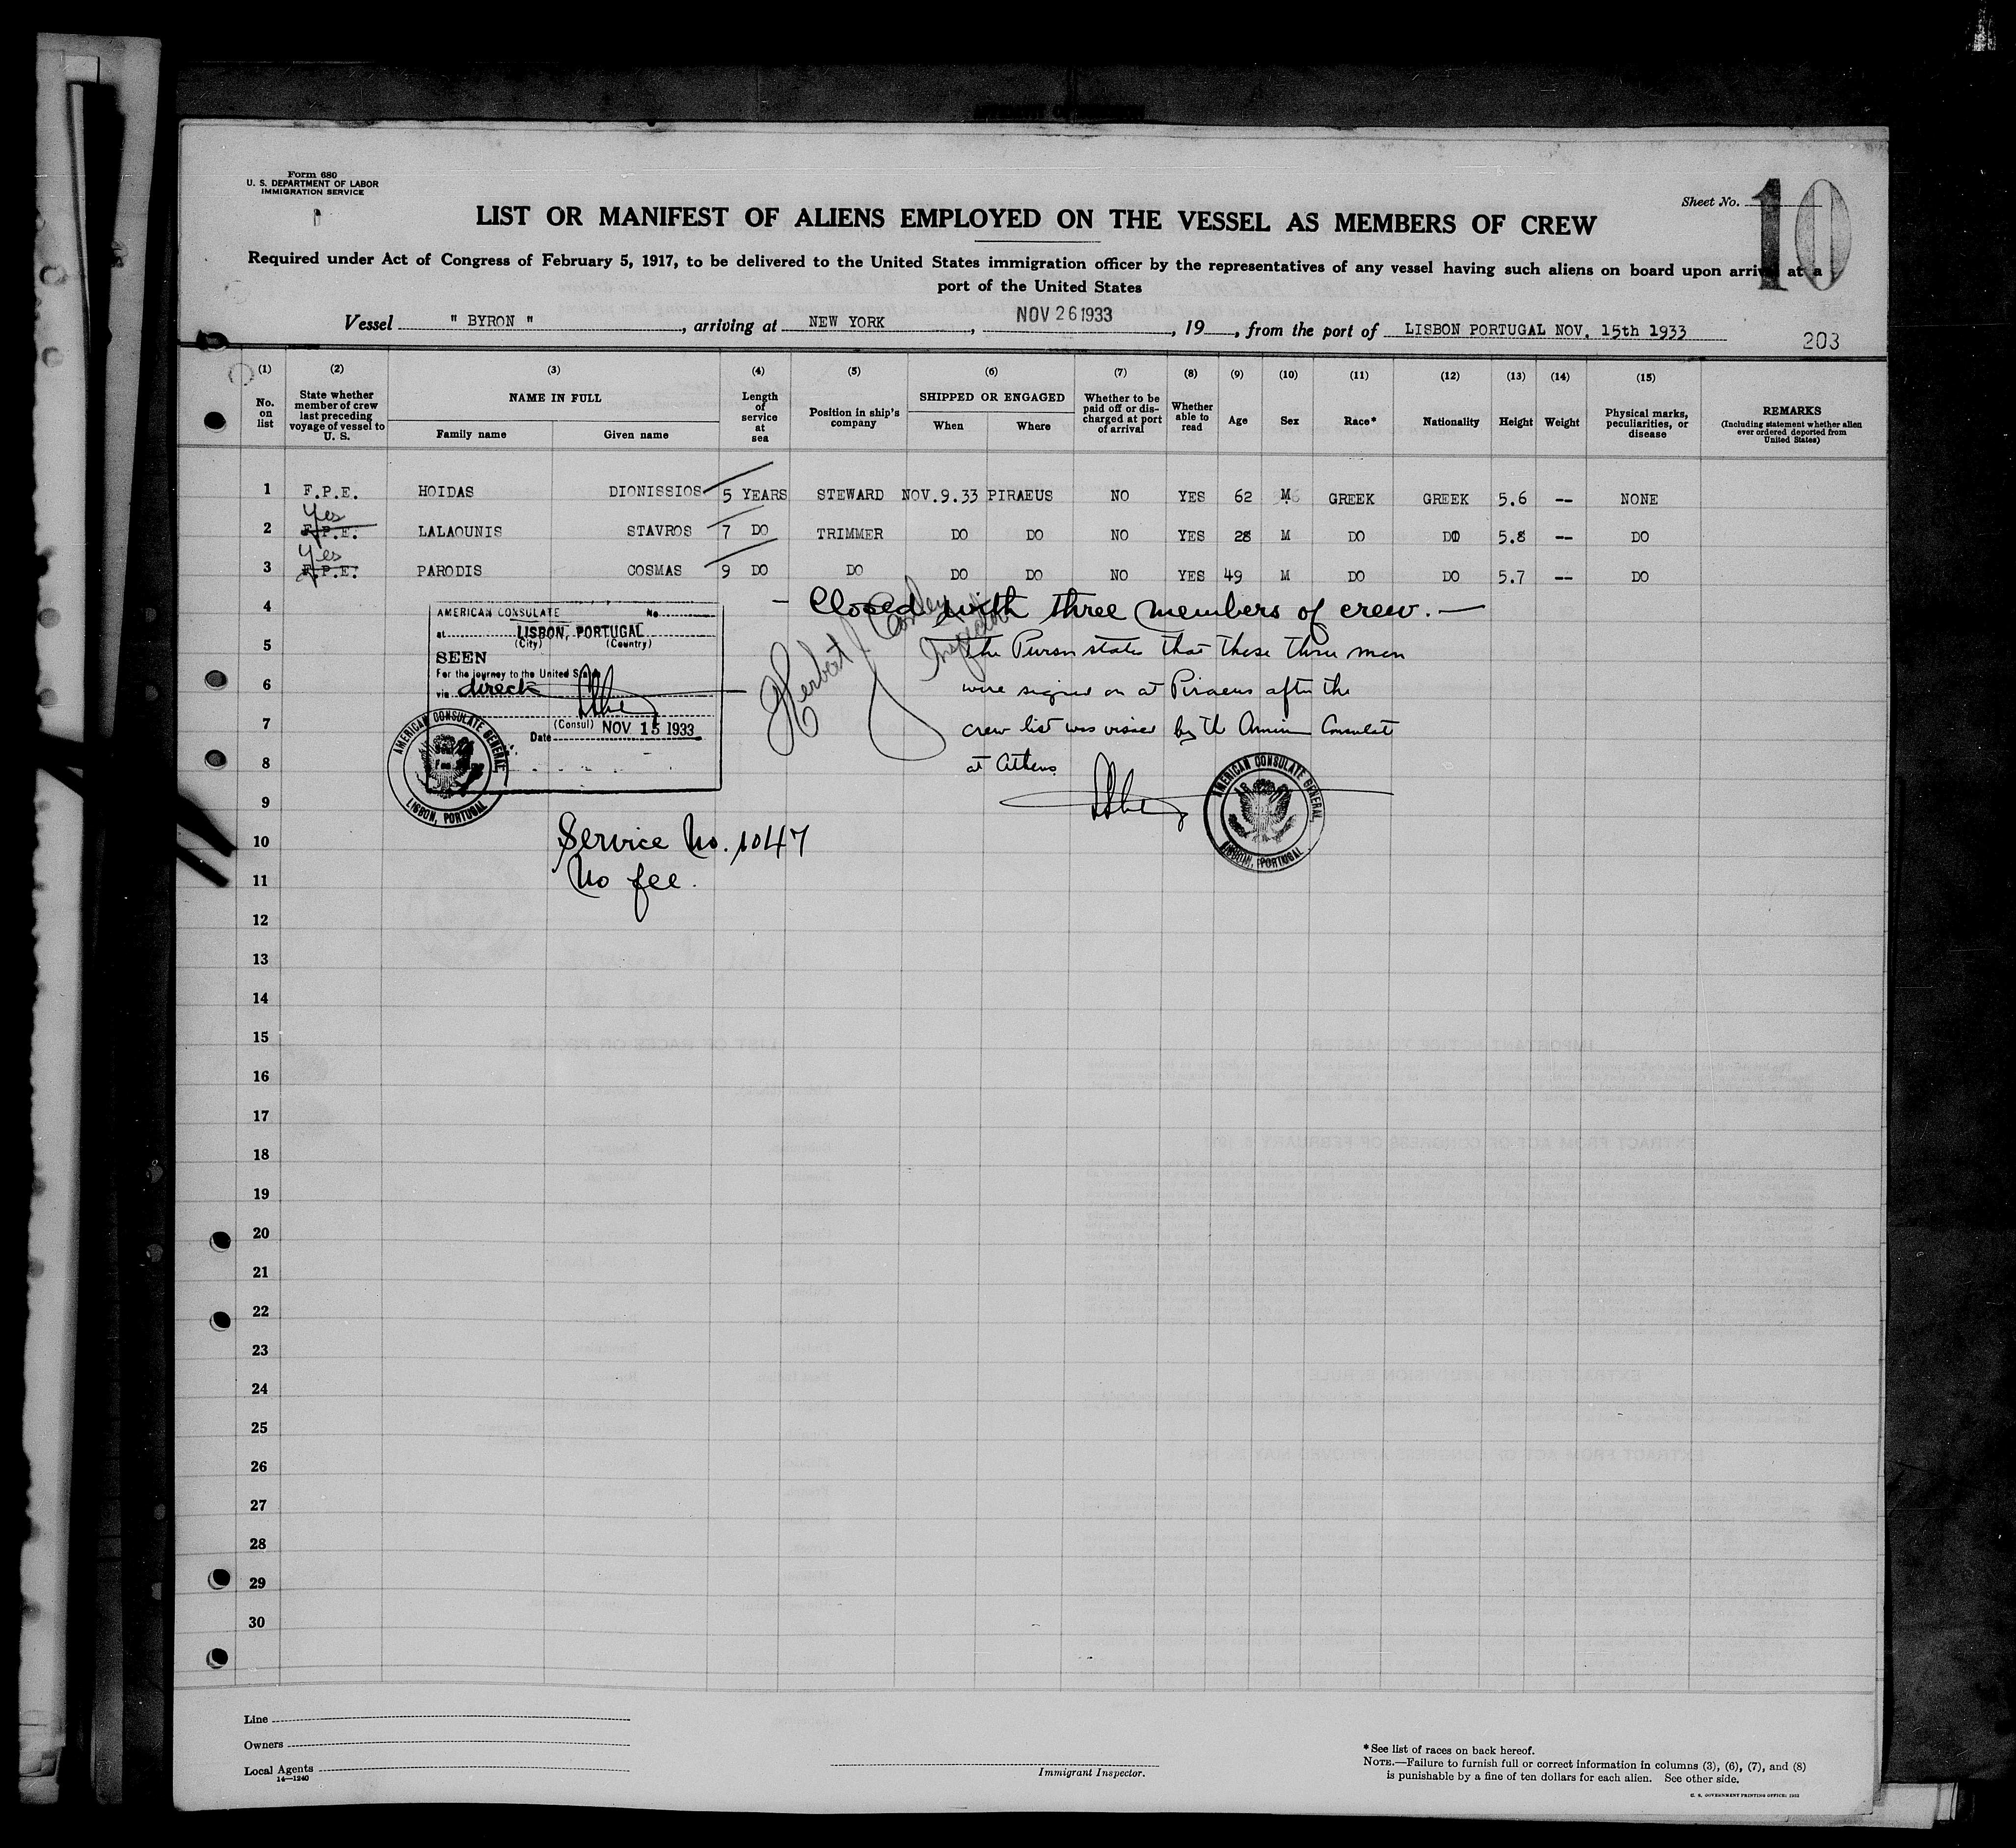 Form 680
U. S. DEPARTMENT OF LABOR
IMMIGRATION SERVICE
Sheet No. 10
LIST OR MANIFEST OF ALIENS EMPLOYED ON THE VESSEL AS MEMBERS OF CREW
Required under Act of Congress of February 5, 1917, to be delivered to the United States immigration officer by the representatives of any vessel having such aliens on board upon arrival at a
port of the United States
Vessel " BYRON ", arriving at NEW YORK, NOV 26 1933, 19 , from the port of LISBON PORTUGAL NOV. 15th 1933
203
(1) (2) (3) (4) (5) (6) (7) (8) (9) (10) (11) (12) (13) (14) (15)
No. on list State whether member of crew last preceding voyage of vessel to U. S. NAME IN FULL Family name Given name Length of service at sea Position in ship's company SHIPPED OR ENGAGED When Where Whether to be paid off or discharged at port of arrival Whether able to read Age Sex Race* Nationality Height Weight Physical marks, peculiarities, or disease REMARKS (Including statement whether alien ever ordered deported from United States)
1 F.P.E. HOIDAS DIONISSIOS 5 YEARS STEWARD NOV.9.33 PIRAEUS NO YES 62 M GREEK GREEK 5.6 -- NONE
Yes
2 F.P.E. LALAOUNIS STAVROS 7 DO TRIMMER DO DO NO YES 28 M DO DO 5.8 -- DO
Yes
3 F.P.E. PARODIS COSMAS 9 DO DO DO DO NO YES 49 M DO DO 5.7 -- DO
4
- Closed with three members of crew. -
AMERICAN CONSULATE No.
at LISBON, PORTUGAL
(City) (Country)
SEEN
For the journey to the United States
via direct
(Consul)
Date NOV 15 1933
AMERICAN CONSULATE GENERAL
LISBON, PORTUGAL
Herbert J.
Inspector
5
The Purser states that these three men
6
were signed on at Piraeus after the
7
crew list was visaed by the American Consulate
8
at Athens
AMERICAN CONSULATE GENERAL
LISBON, PORTUGAL
9
10
Service No. 1047
11
No fee.
12
13
14
15
16
17
18
19
20
21
22
23
24
25
26
27
28
29
30
Line
Owners
Local Agents
14—1240
Immigrant Inspector.
* See list of races on back hereof.
NOTE.—Failure to furnish full or correct information in columns (3), (6), (7), and (8)
is punishable by a fine of ten dollars for each alien. See other side.
U. S. GOVERNMENT PRINTING OFFICE: 1933